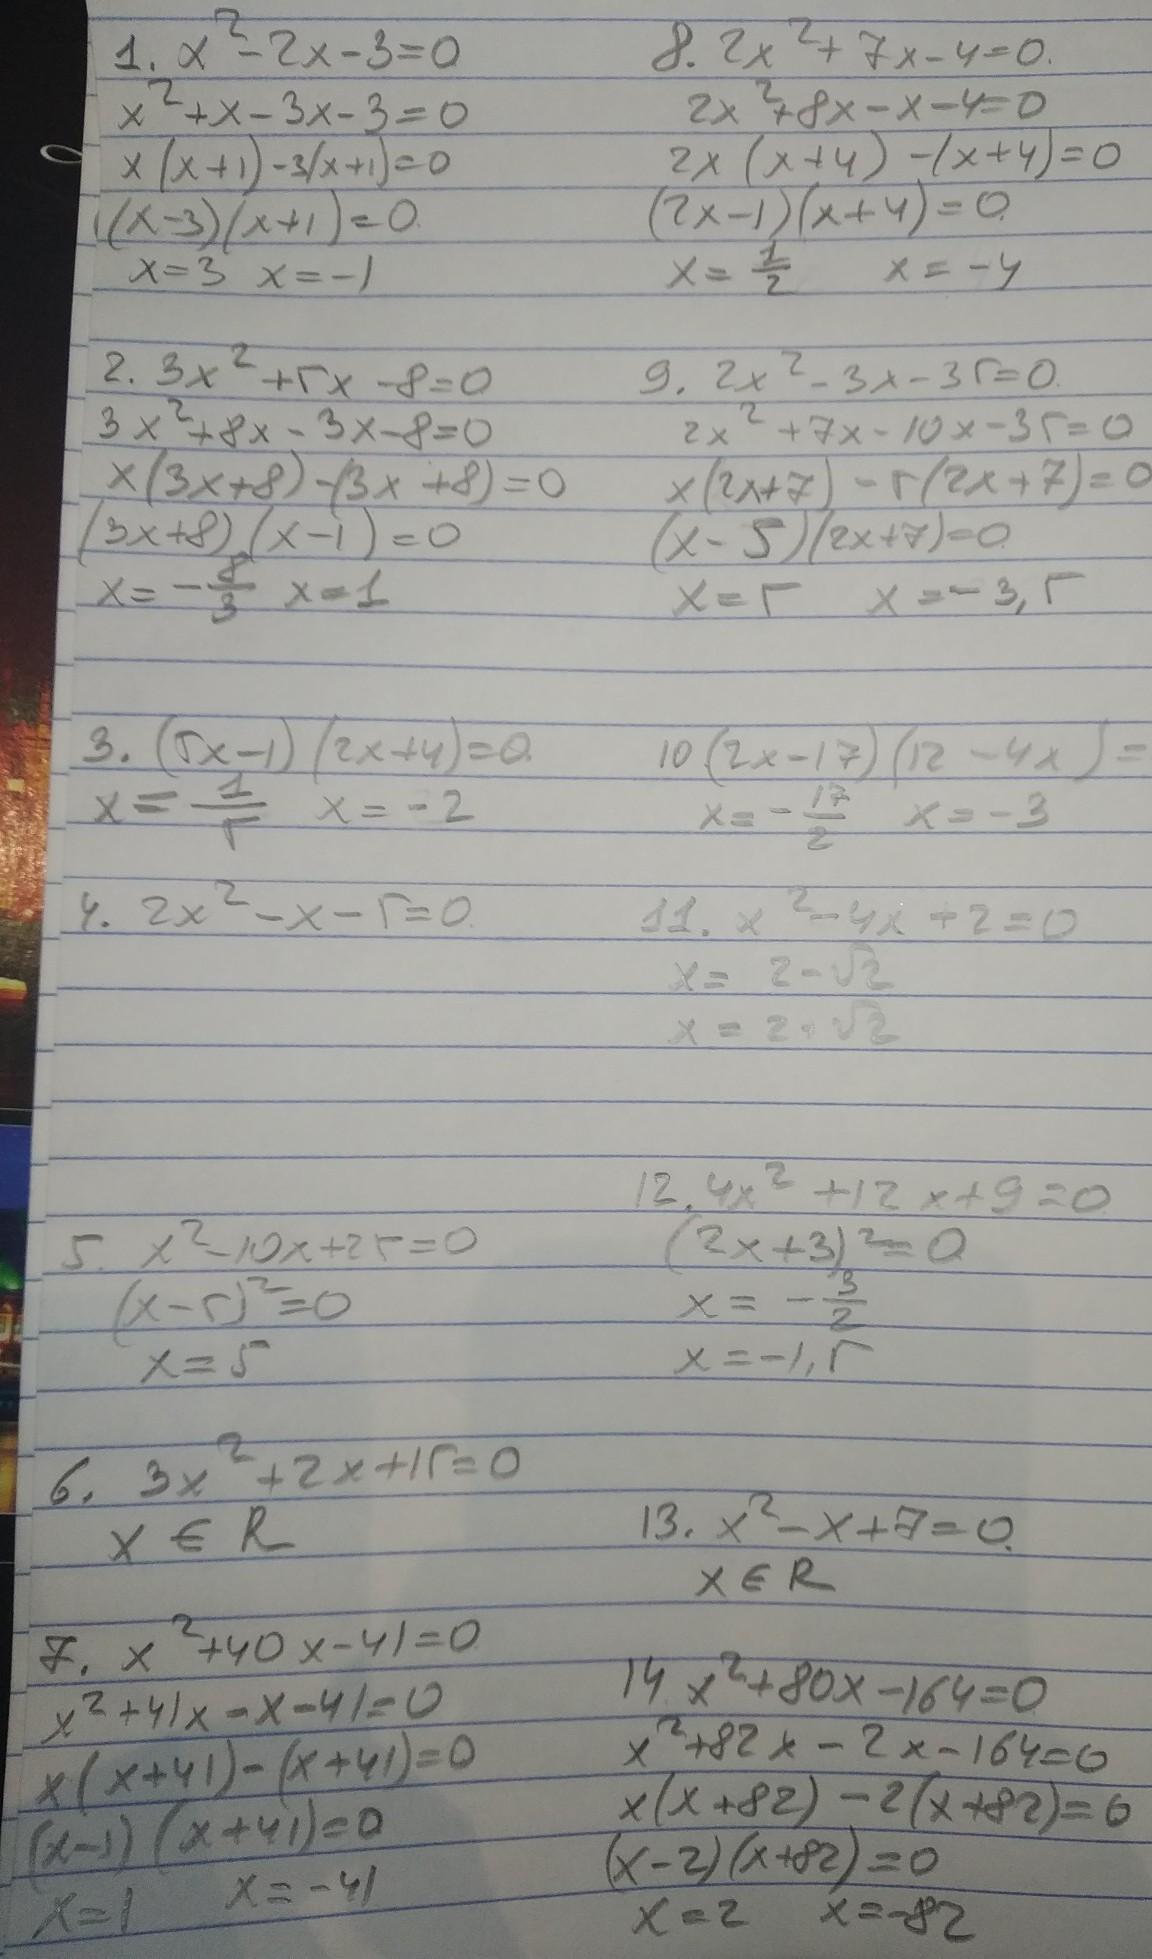 1. x²-2x-3=0
x²+x-3x-3=0
x(x+1)-3(x+1)=0
(x-3)(x+1)=0
x=3 x=-1
2. 3x²+5x-8=0
3x²+8x-3x-8=0
x(3x+8)-(3x+8)=0
(3x+8)(x-1)=0
x=-8/3 x=1
3. (5x-1)(2x+4)=0
x=1/5 x=-2
4. 2x²-x-5=0
5. x²-10x+25=0
(x-5)²=0
x=5
6. 3x²+2x+15=0
x∈R
7. x²+40x-41=0
x²+41x-x-41=0
x(x+41)-(x+41)=0
(x-1)(x+41)=0
x=1 x=-41
8. 2x²+7x-4=0.
2x²+8x-x-4=0
2x(x+4)-(x+4)=0
(2x-1)(x+4)=0
x=1/2 x=-4
9. 2x²-3x-35=0
2x²+7x-10x-35=0
x(2x+7)-5(2x+7)=0
(x-5)(2x+7)=0
x=5 x=-3,5
10 (2x-17)(12-4x)=
x=-17/2 x=-3
11. x²-4x+2=0
x=2-√2
x=2·√2
12. 4x²+12x+9=0
(2x+3)²=0
x=-3/2
x=-1,5
13. x²-x+7=0.
x∈R
14 x²+80x-164=0
x²+82x-2x-164=0
x(x+82)-2(x+82)=0
(x-2)(x+82)=0
x=2 x=-82